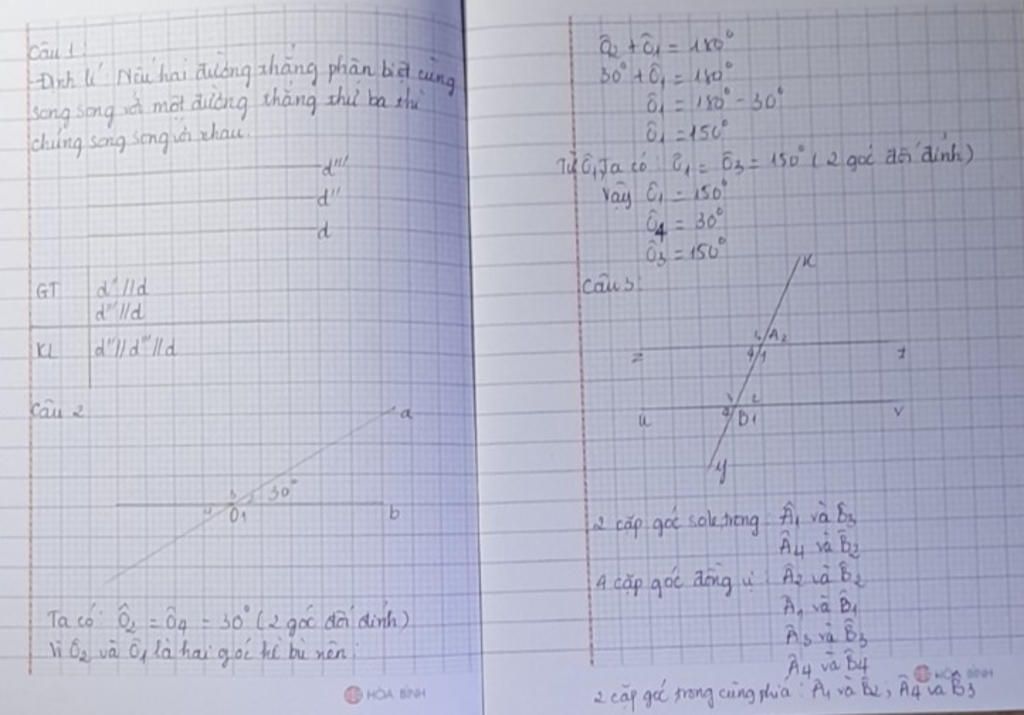 Câu 1:
Định lí: Nếu hai đường thẳng phân biệt cùng
song song với một đường thẳng thứ ba thì
chúng song song với nhau.
d'''
d''
d
GT d''//d
d'''//d
KL d''//d'''//d
Câu 2
a
3 30°
4 O1 b
Ta có: Ô2 = Ô4 = 30° (2 góc đối đỉnh)
Vì Ô2 và Ô1 là hai góc kề bù nên:
HÒA BÌNH
Ô2 + Ô1 = 180°
30° + Ô1 = 180°
Ô1 = 180° - 30°
Ô1 = 150°
Từ Ô1 ta có: Ô1 = Ô3 = 150° (2 góc đối đỉnh)
Vậy Ô1 = 150°
Ô4 = 30°
Ô3 = 150°
Câu 3:
x
3 A 2
z 4 1 t
3 2
u 4 B 1 v
y
2 cặp góc sole trong: Â1 và B̂3
Â4 và B̂2
4 cặp góc đồng vị: Â2 và B̂2
Â1 và B̂1
Â3 và B̂3
Â4 và B̂4
HÒA BÌNH
2 cặp góc trong cùng phía: Â1 và B̂2; Â4 và B̂3